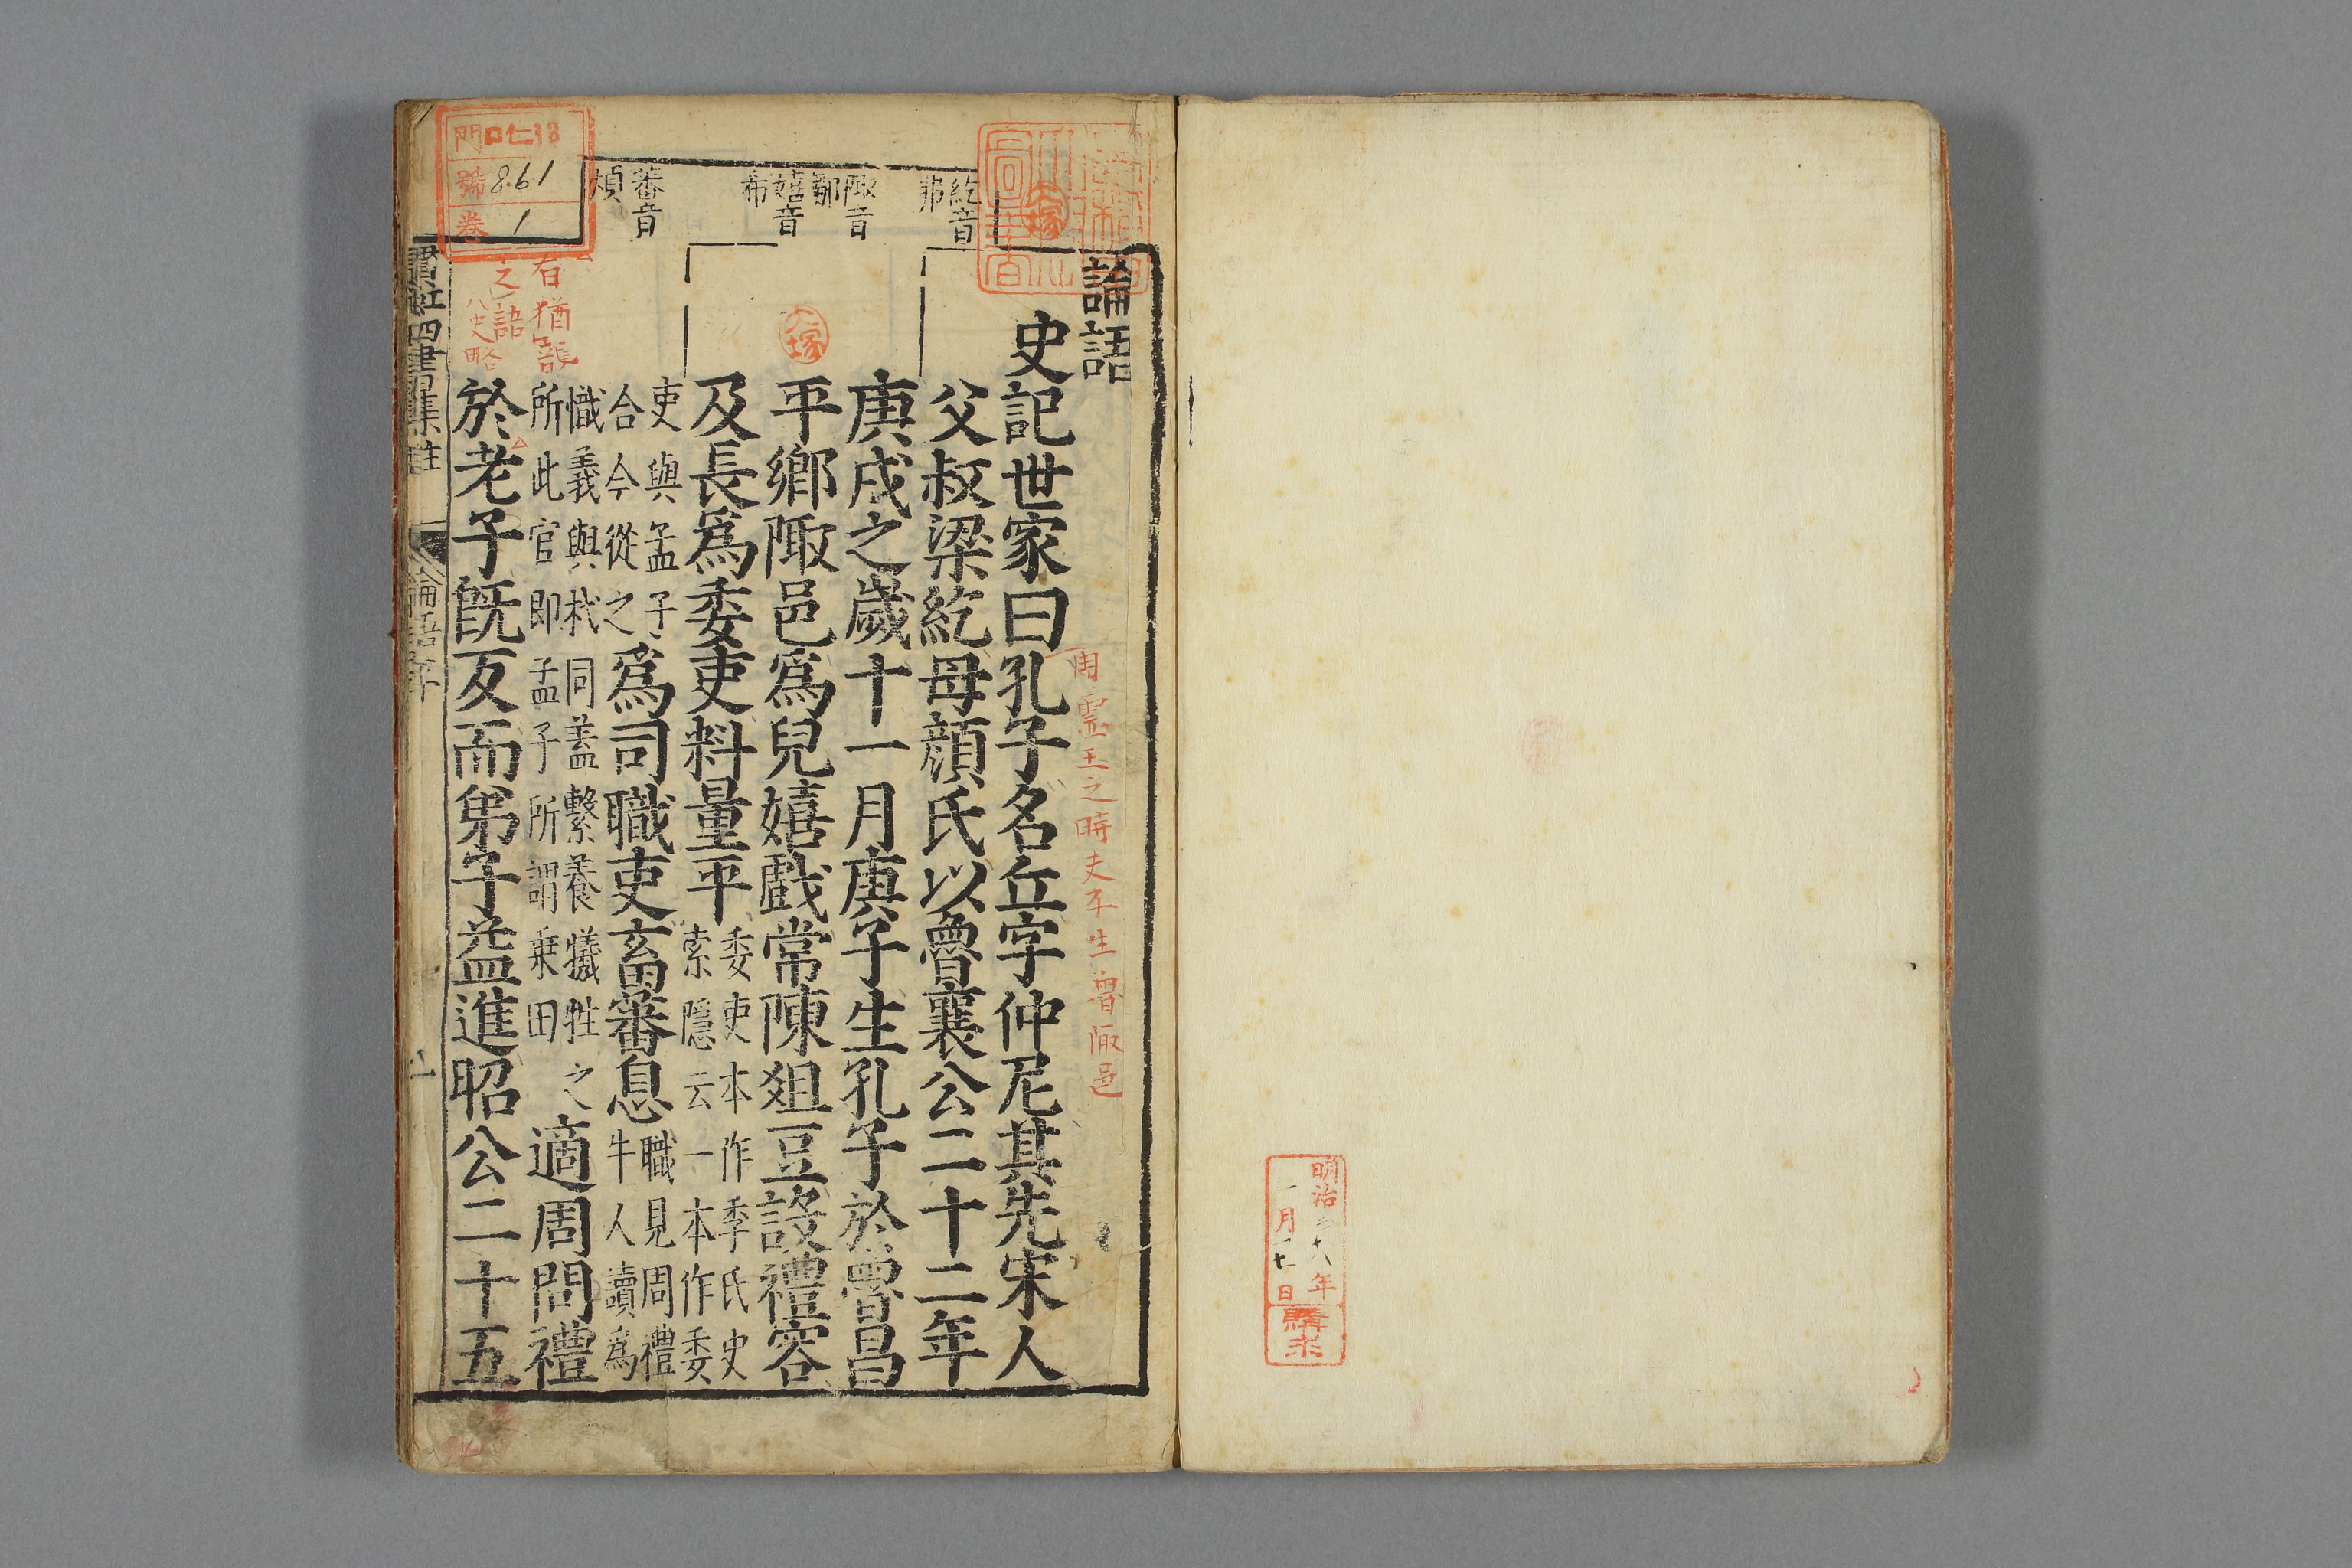 明治 十八年
一月 七日
購求
論語
周霊王之時夫子生魯陬邑
史記世家曰孔子名丘字仲尼其先宋人
父叔梁紇母顔氏以魯襄公二十二年
庚戌之歲十一月庚子生孔子於魯昌
平鄉陬邑爲兒嬉戲常陳爼豆設禮容
及長爲委吏料量平
委吏本作季氏史
索隱云一本作委
吏與孟子
合今從之
爲司職吏畜蕃息
職見周禮
牛人讀爲
樴義與杙同蓋繫養犧牲之
所此官即孟子所謂乗田
適周問禮
於老子旣反而弟子益進昭公二十五
紇音
陬音
鄒
嬉音
希
蕃音
煩
大塚
有猶龍
之語
史略
門 ロ仁13
號 861
卷 1
四書集註
論語序